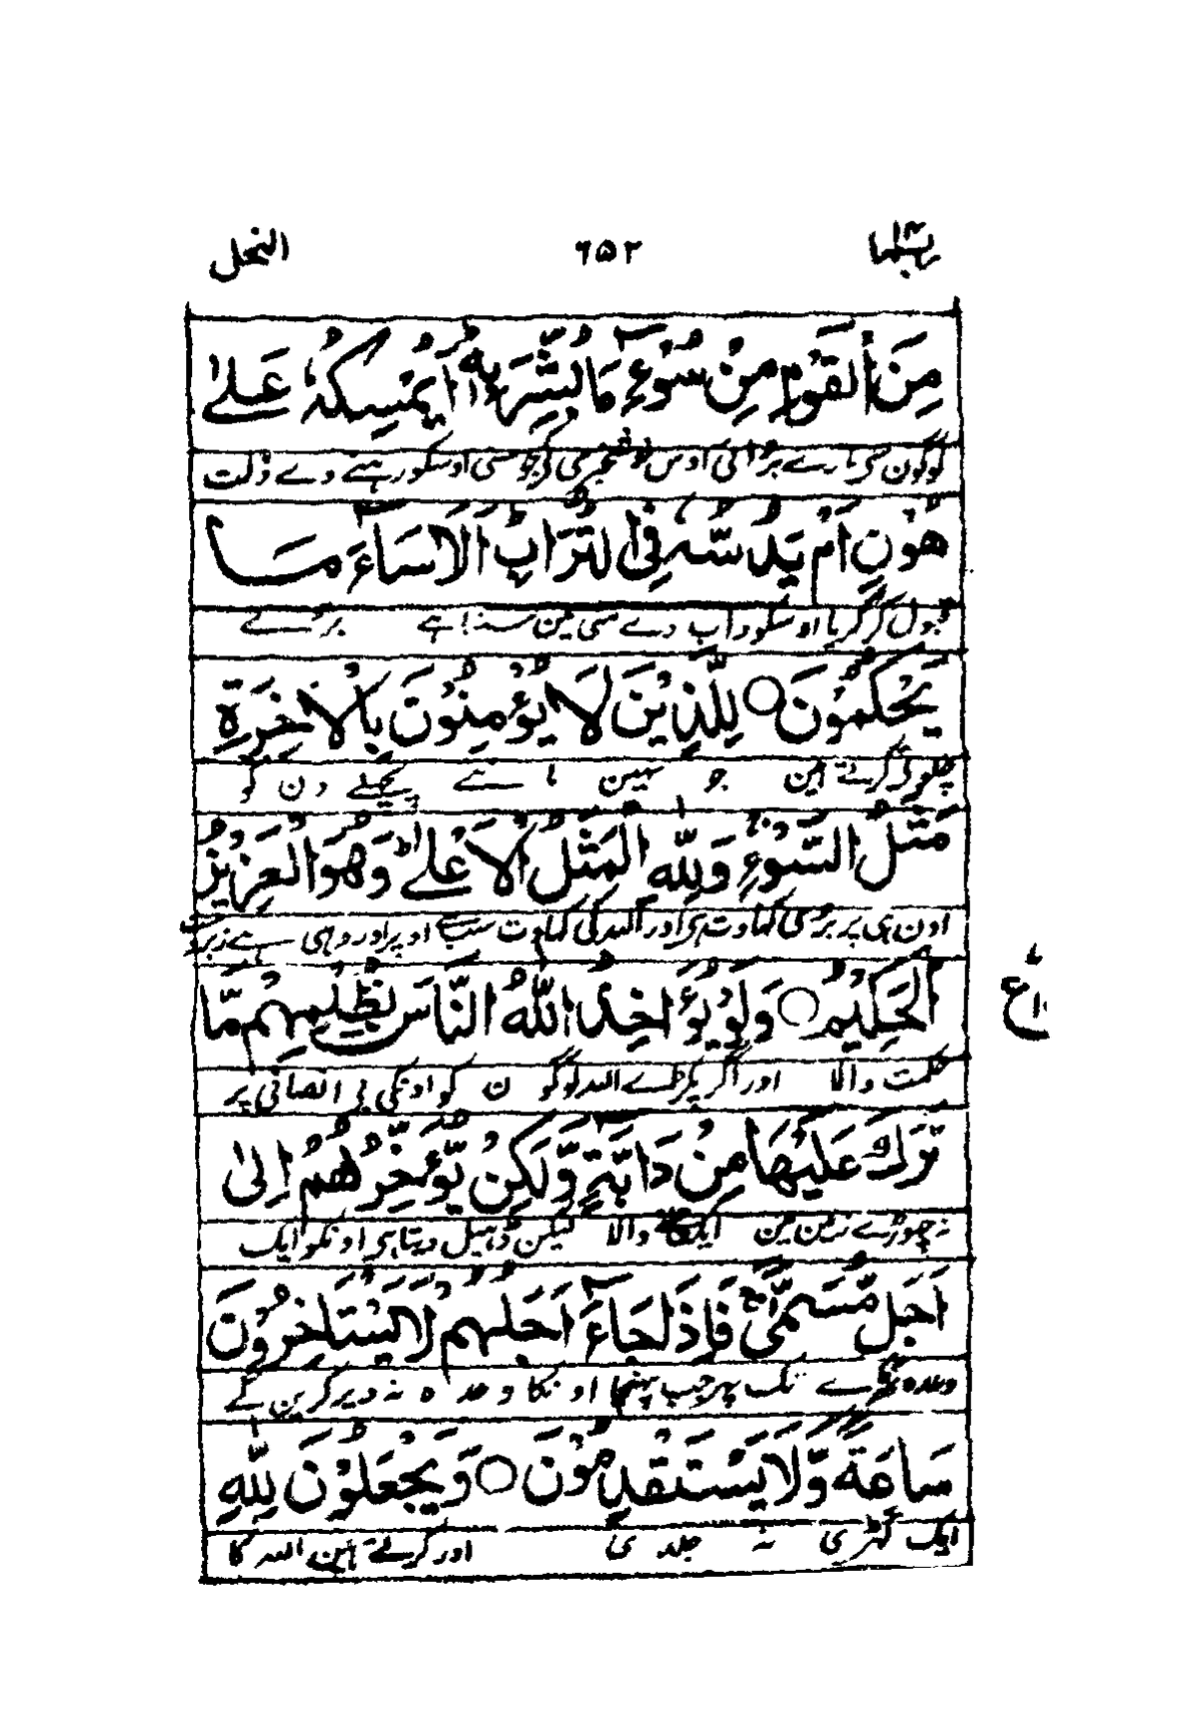 ربما ١٤ ٦٥٢ النحل
مِنَ الْقَوْمِ مِنْ سُوْٓءِ مَا بُشِّرَ بِهٖ ؕ اَيُمْسِكُهٗ عَلٰى
لوگون سی مارے برائی اوس خوشخبری کی جو سنی اوسکو رہنے دے ذلت
هُوْنٍ اَمْ يَدُسُّهٗ فِى التُّرَابِ ؕ اَلَا سَآءَ مَا
قبول کر کر یا اوسکو داب دے مٹی مین سنتا ہے برے
يَحْكُمُوْنَ ○ لِلَّذِيْنَ لَا يُؤْمِنُوْنَ بِالْاٰخِرَةِ
چکوتی کرتے ہین جو نہین مانتے پچھلے دن کو
مَثَلُ السَّوْءِ ۚ وَلِلّٰهِ الْمَثَلُ الْاَعْلٰى ؕ وَهُوَ الْعَزِيْزُ
اون ہی پر بری کہاوت ہی اور اللہ کی کہاوت سب سے اوپر اور وہی ہے زبردست
الْحَكِيْمُ ○ وَلَوْ يُؤَاخِذُ اللّٰهُ النَّاسَ بِظُلْمِهِمْ مَّا
ع
حکمت والا اور اگر پکڑے اللہ لوگون کو اونکی بی انصافی پر
تَرَكَ عَلَيْهَا مِنْ دَآبَّةٍ وَّلٰكِنْ يُّؤَخِّرُهُمْ اِلٰى
نہ چھوڑے زمین مین ایک چلنے والا لیکن ڈھیل دیتا ہی اونکو ایک
اَجَلٍ مُّسَمًّى ۚ فَاِذَا جَآءَ اَجَلُهُمْ لَا يَسْتَاْخِرُوْنَ
وعدہ ٹھہرے تک پھر جب پہنچا اونکا وعدہ نہ دیر کرین گے
سَاعَةً وَّلَا يَسْتَقْدِمُوْنَ ○ وَيَجْعَلُوْنَ لِلّٰهِ
ایک گھڑی نہ جلدی اور کرتے ہین اللہ کا